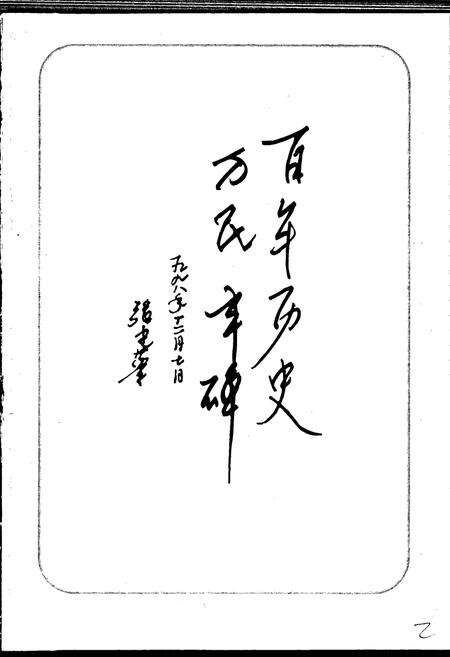 百年历史
万民丰碑
一九九八年十二月七日
张